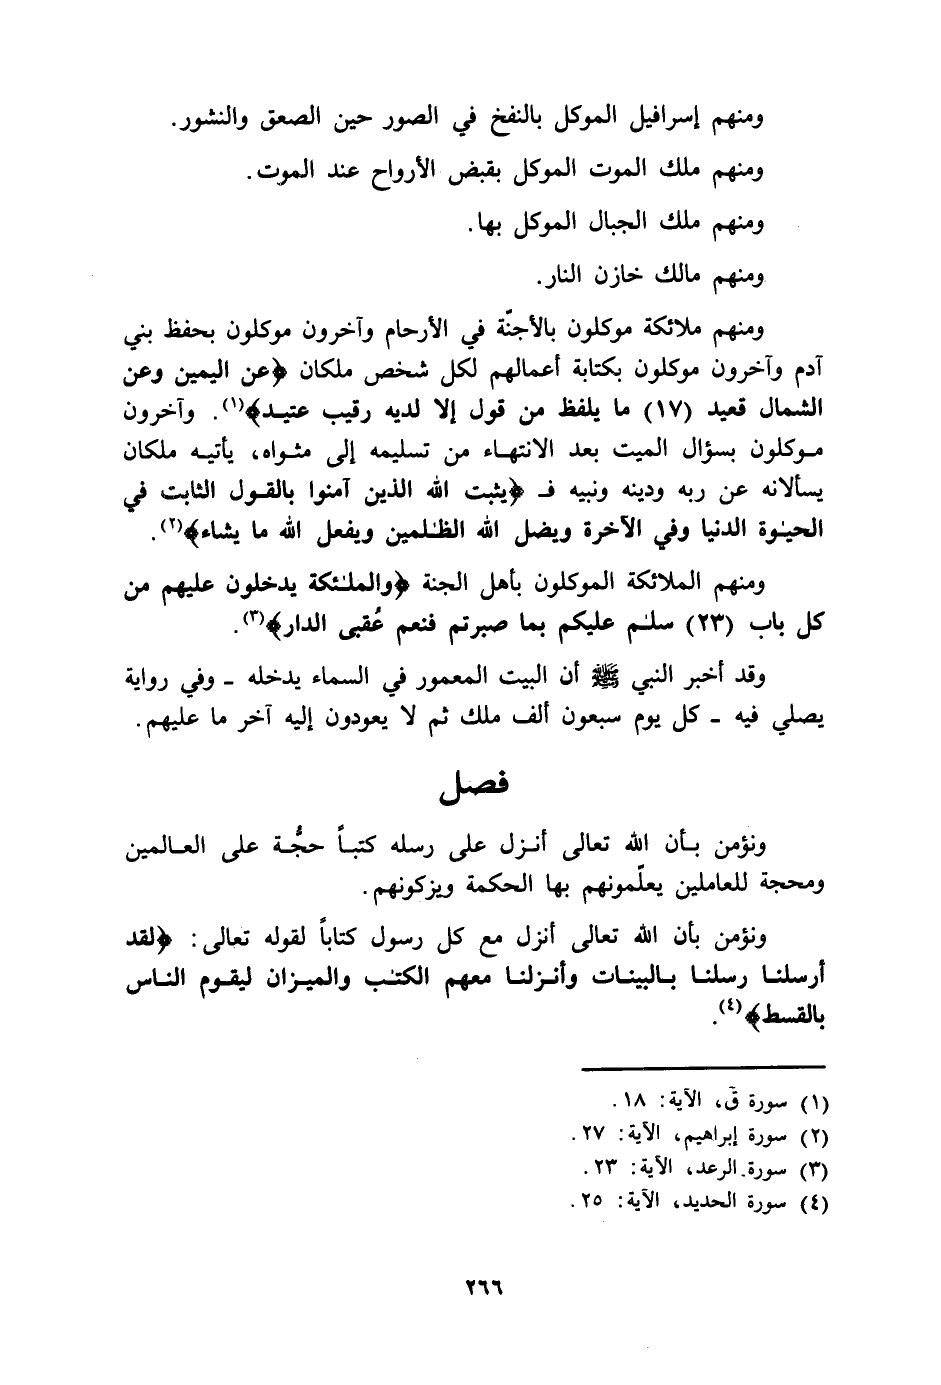 ومنهم إسرافيل الموكل بالنفخ في الصور حين الصعق والنشور.
ومنهم ملك الموت الموكل بقبض الأرواح عند الموت.
ومنهم ملك الجبال الموكل بها.
ومنهم مالك خازن النار.
ومنهم ملائكة موكلون بالأجنّة في الأرحام وآخرون موكلون بحفظ بني
آدم وآخرون موكلون بكتابة أعمالهم لكل شخص ملكان ﴿عن اليمين وعن
الشمال قعيد (١٧) ما يلفظ من قول إلا لديه رقيب عتيد﴾(١). وآخرون
موكلون بسؤال الميت بعد الانتهاء من تسليمه إلى مثواه، يأتيه ملكان
يسألانه عن ربه ودينه ونبيه فـ ﴿يثبت الله الذين آمنوا بالقول الثابت في
الحيوٰة الدنيا وفي الآخرة ويضل الله الظٰلمين ويفعل الله ما يشاء﴾(٢).
ومنهم الملائكة الموكلون بأهل الجنة ﴿والملٰئكة يدخلون عليهم من
كل باب (٢٣) سلٰم عليكم بما صبرتم فنعم عُقبى الدار﴾(٣).
وقد أخبر النبي ﷺ أن البيت المعمور في السماء يدخله ـ وفي رواية
يصلي فيه ـ كل يوم سبعون ألف ملك ثم لا يعودون إليه آخر ما عليهم.
فصل
ونؤمن بأن الله تعالى أنزل على رسله كتباً حجُّة على العالمين
ومحجة للعاملين يعلّمونهم بها الحكمة ويزكونهم.
ونؤمن بأن الله تعالى أنزل مع كل رسول كتاباً لقوله تعالى: ﴿لقد
أرسلنا رسلنا بالبينات وأنزلنا معهم الكتٰب والميزان ليقوم الناس
بالقسط﴾(٤).
(١) سورة قٓ، الآية: ١٨.
(٢) سورة إبراهيم، الآية: ٢٧.
(٣) سورة الرعد، الآية: ٢٣.
(٤) سورة الحديد، الآية: ٢٥.
٢٦٦